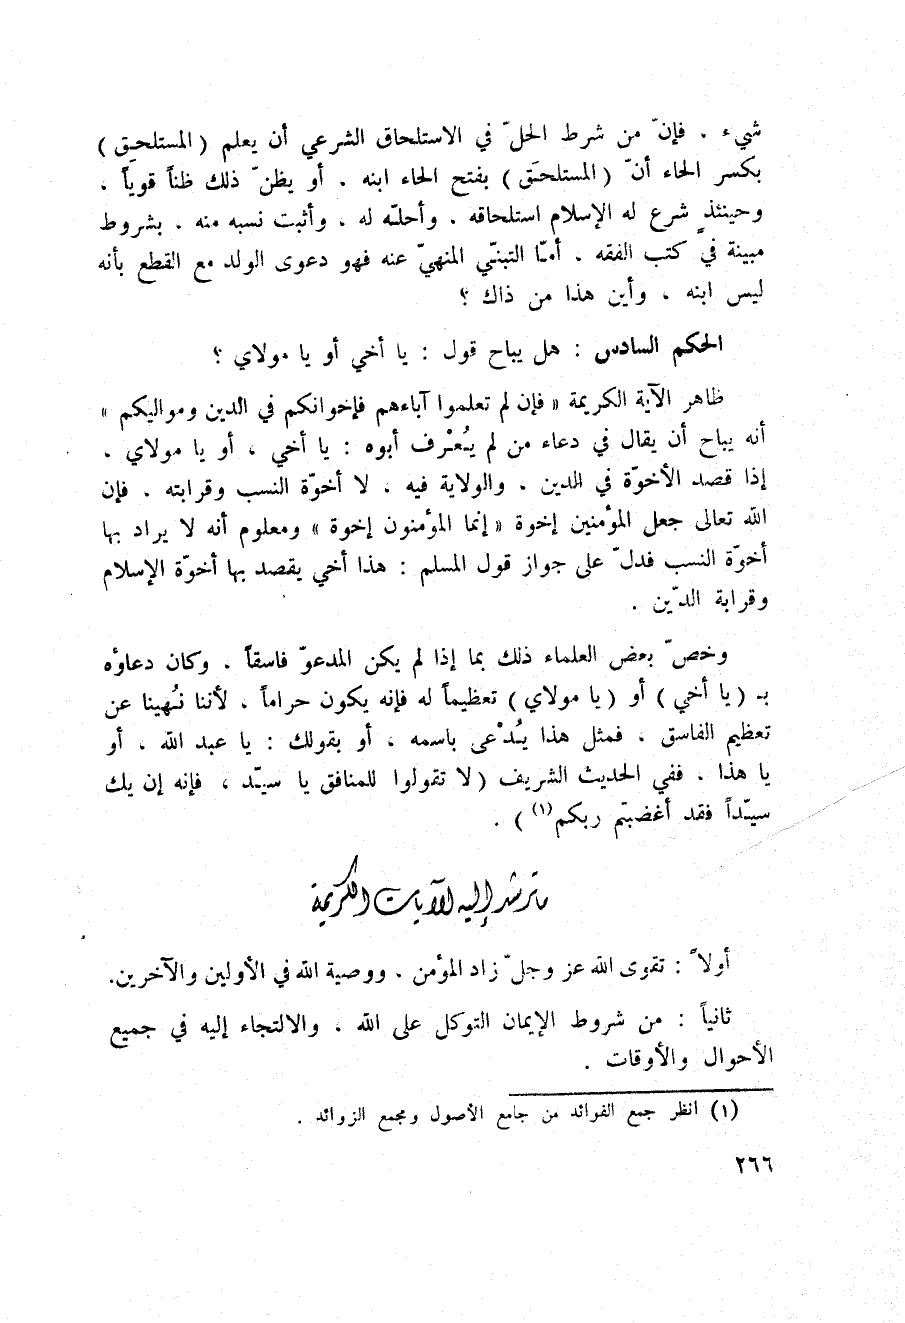 شيء . فإنّ من شرط الحلّ في الاستلحاق الشرعي أن يعلم ( المستلحِق )
بكسر الحاء أنّ ( المستلحَق ) بفتح الحاء ابنه . أو يظنّ ذلك ظناً قوياً ،
وحينئذٍ شرع له الإسلام استلحاقه . وأحلّه له . وأثبت نسبه منه . بشروط
مبينة في كتب الفقه . أمّا التبنّي المنهيّ عنه فهو دعوى الولد مع القطع بأنه
ليس ابنه . وأين هذا من ذاك ؟
الحكم السادس : هل يباح قول : يا أخي أو يا مولاي ؟
ظاهر الآية الكريمة « فإن لم تعلموا آباءهم فإخوانكم في الدين ومواليكم »
أنه يباح أن يقال في دعاء من لم يُعْرف أبوه : يا أخي ، أو يا مولاي .
إذا قصد الأخوّة في الدين . والولاية فيه . لا أخوّة النسب وقرابته . فإن
الله تعالى جعل المؤمنين إخوة « إنما المؤمنون إخوة » ومعلوم أنه لا يراد بها
أخوّة النسب فدلّ على جواز قول المسلم : هذا أخي يقصد بها أخوّة الإسلام
وقرابة الدّين .
وخصّ بعض العلماء ذلك بما إذا لم يكن المدعوّ فاسقاً . وكان دعاؤه
بـ ( يا أخي ) أو ( يا مولاي ) تعظيماً له فإنه يكون حراماً ، لأننا نُهينا عن
تعظيم الفاسق ، فمثل هذا يُدْعى باسمه ، أو بقولك : يا عبد الله ، أو
يا هذا . ففي الحديث الشريف ( لا تقولوا للمنافق يا سيّد ، فإنه إن يك
سيّداً فقد أغضبتم ربكم(١) ) .
ما ترشد إليه الآيات الكريمة
أولاً : تقوى الله عز وجلّ زاد المؤمن . ووصية الله في الأولين والآخرين.
ثانياً : من شروط الإيمان التوكل على الله ، والالتجاء إليه في جميع
الأحوال والأوقات .
(١) انظر جمع الفوائد من جامع الأصول ومجمع الزوائد .
٢٦٦